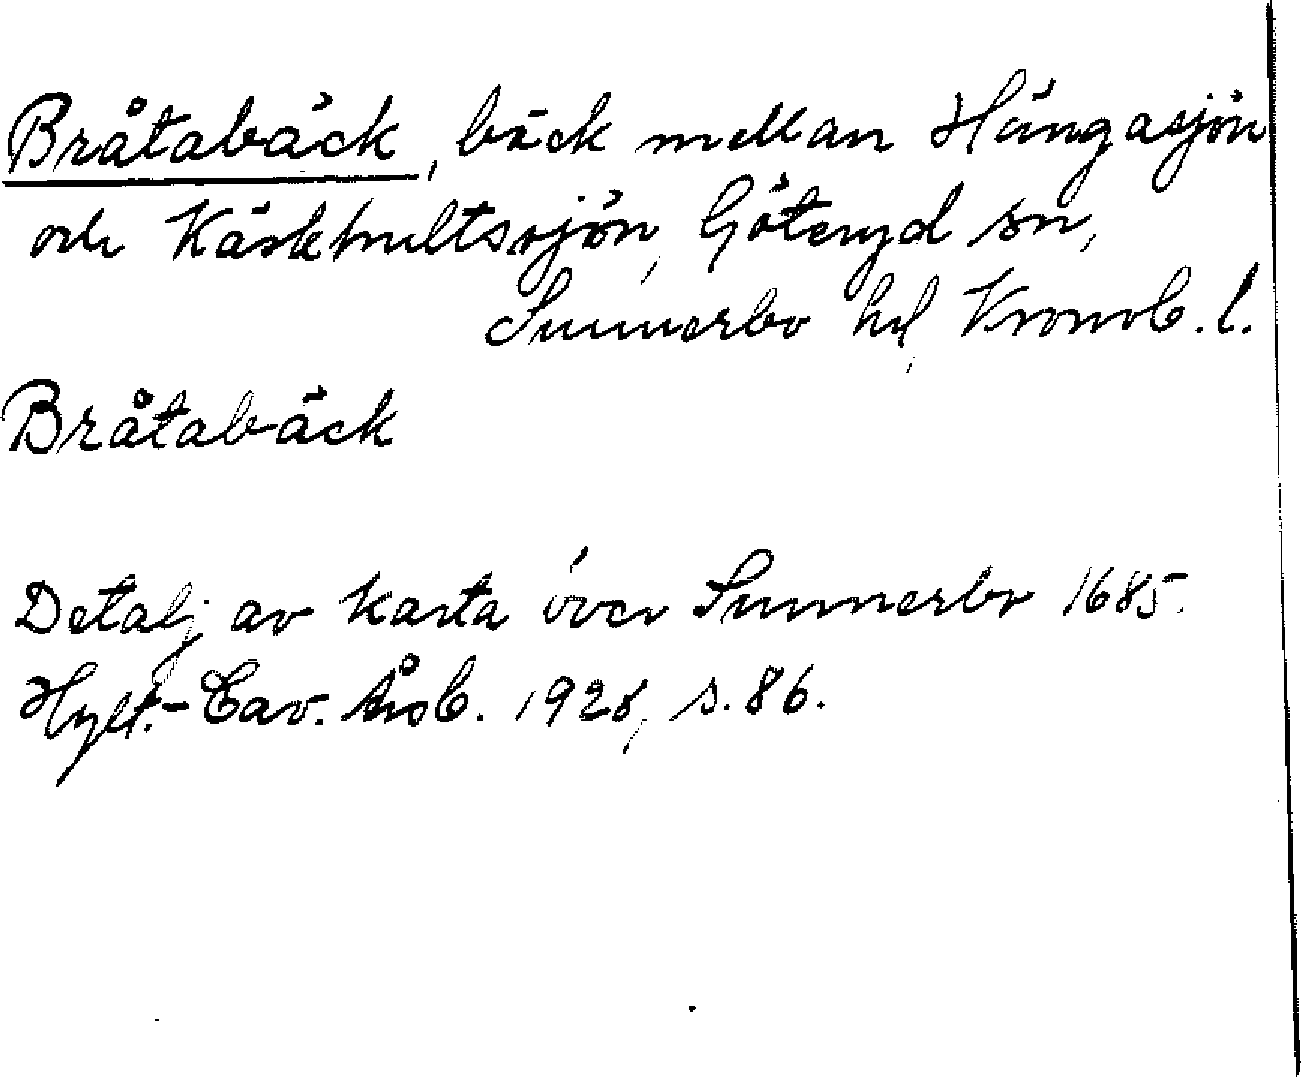 Bråtabäck, bäck mellan Hängasjön
och Käskhultssjön, Göteryd sn,
Sunnerbo hd, Kronob. l.
Bråtabäck
Detalj av karta över Sunnerbo 1685.
Hylt.-Cav. Årsb. 1928, s. 86.